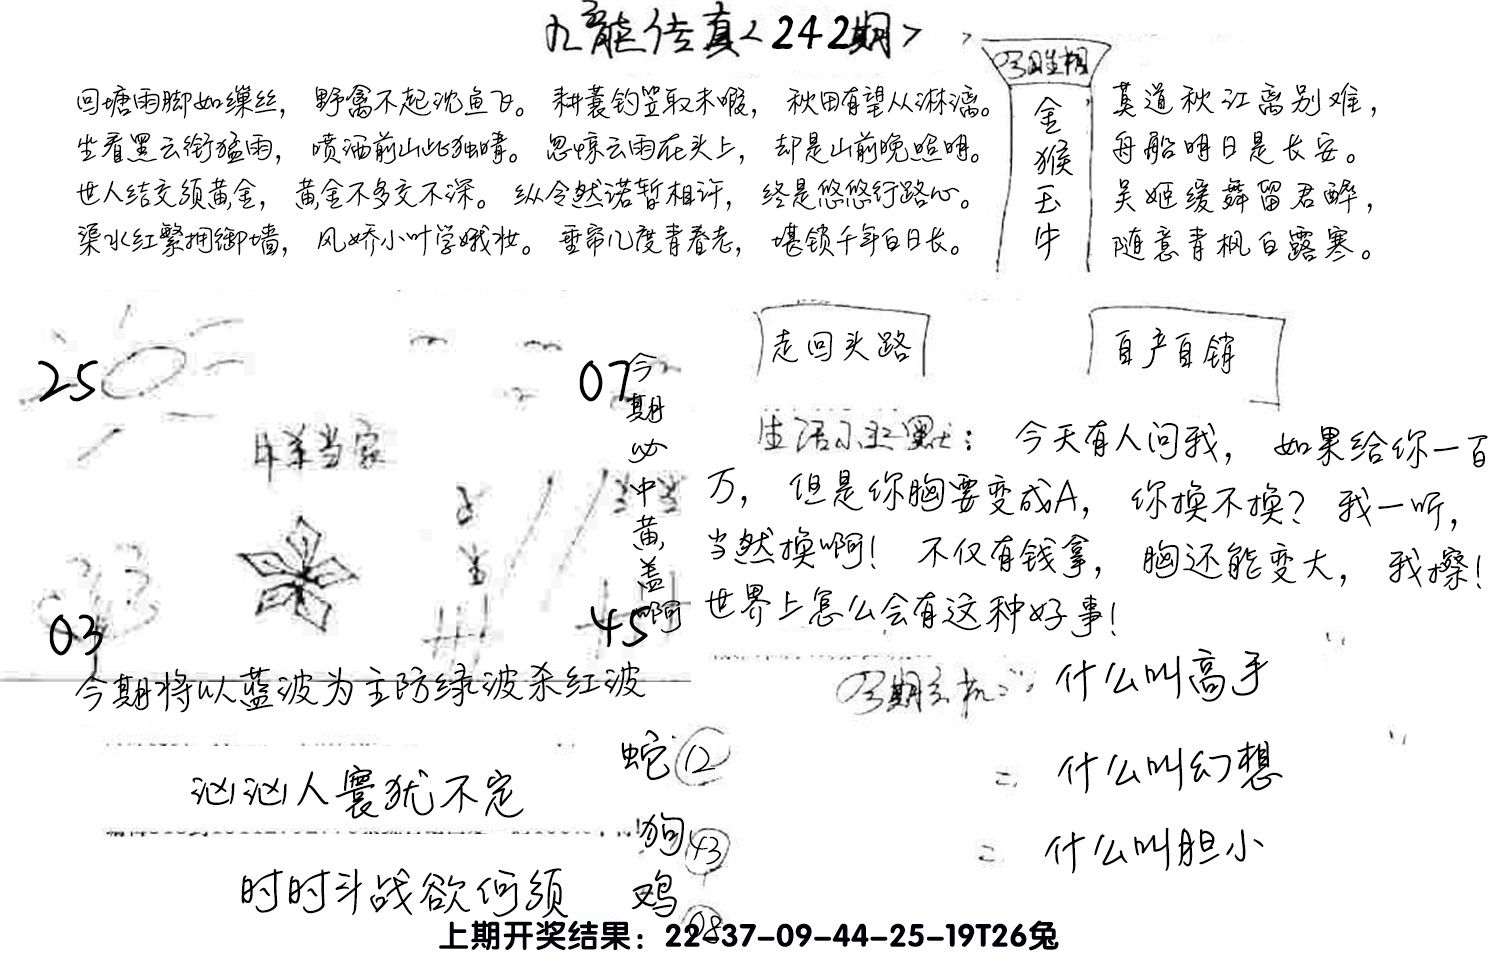 九龙传真<242期>
回塘雨脚如缫丝，野禽不起沈鱼飞。耕蓑钓笠取未暇，秋田有望从淋漓。
坐看黑云衔猛雨，喷洒前山此独晴。忽惊云雨在头上，却是山前晚照明。
世人结交须黄金，黄金不多交不深。纵令然诺暂相许，终是悠悠行路心。
渠水红繁拥御墙，风娇小叶学娥妆。垂帘几度青春老，堪锁千年白日长。
今日生相
金
猴
玉
牛
莫道秋江离别难，
舟船明日是长安。
吴姬缓舞留君醉，
随意青枫白露寒。
25
07
牛羊当家
03
45
今期必中黄盖啊
今期将以蓝波为主防绿波杀红波
走回头路
自产自销
生活幽默：今天有人问我，如果给你一百
万，但是你胸要变成A，你换不换？我一听，
当然换啊！不仅有钱拿，胸还能变大，我擦！
世界上怎么会有这种好事！
今期玄机：什么叫高手
什么叫幻想
什么叫胆小
汹汹人寰犹不定
时时斗战欲何须
蛇12
狗43
鸡08
上期开奖结果：22-37-09-44-25-19T26兔